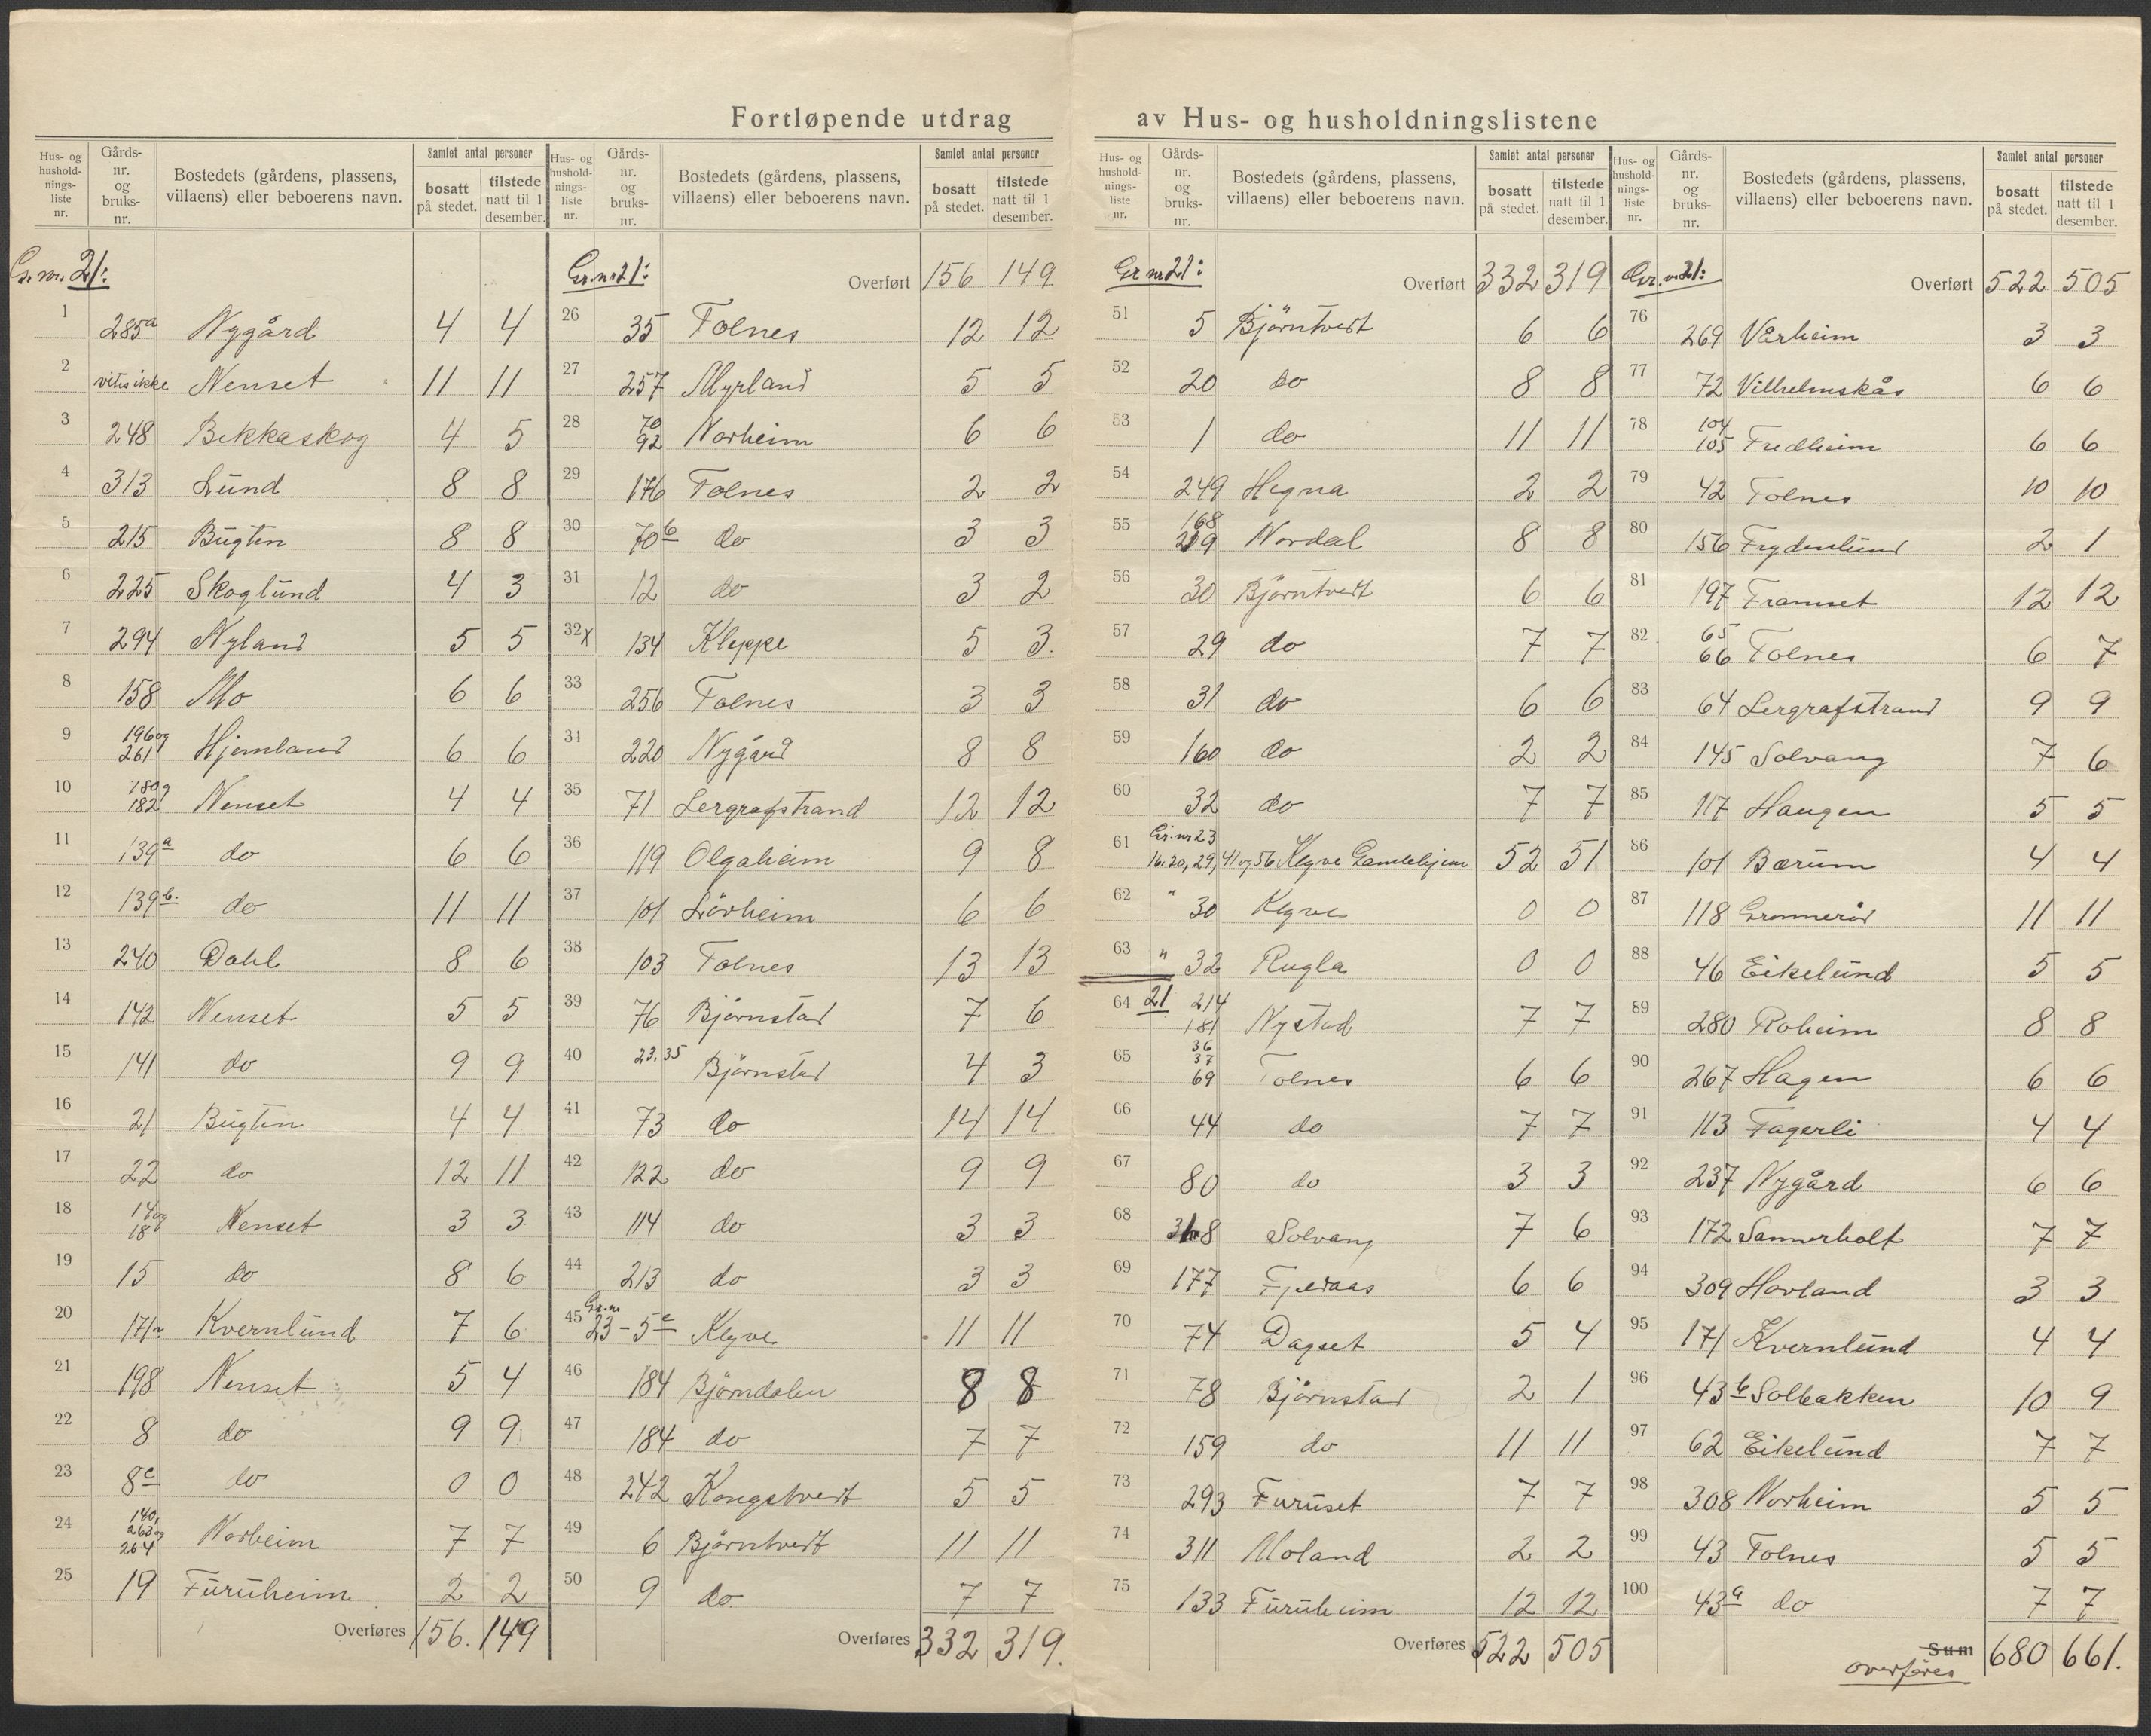 Fortløpende utdrag av Hus- og husholdningslistene
Hus- og husholdnings-liste nr. | Gårds-nr. og bruks-nr. | Bostedets (gårdens, plassens, villaens) eller beboerens navn. | Samlet antal personer | bosatt på stedet. | tilstede natt til 1 desember.
Gr. nr. 21:
1 285a Nygård 4 4
2 vites ikke Nenset 11 11
3 248 Bekkaskog 4 5
4 313 Lund 8 8
5 215 Bugten 8 8
6 225 Skoglund 4 3
7 294 Nyland 5 5
8 158 Mo 6 6
9 196 og 261 Hjemland 6 6
10 180 og 182 Nenset 4 4
11 139a do 6 6
12 139b. do 11 11
13 240 Dahl 8 6
14 142 Nenset 5 5
15 141 do 9 9
16 21 Bugten 4 4
17 22 do 12 11
18 14 og 18 Nenset 3 3
19 15 do 8 6
20 171a Kvernlund 7 6
21 198 Nenset 5 4
22 8 do 9 9
23 8c do 0 0
24 140, 263 og 264 Norheim 7 7
25 19 Furuheim 2 2
Overføres 156. 149
Hus- og husholdnings-liste nr. | Gårds-nr. og bruks-nr. | Bostedets (gårdens, plassens, villaens) eller beboerens navn. | Samlet antal personer | bosatt på stedet. | tilstede natt til 1 desember.
Gr. nr 21: Overført 156 149
26 35 Tolnes 12 12
27 257 Myrland 5 5
28 70 92 Norheim 6 6
29 176 Tolnes 2 2
30 70b do 3 3
31 12 do 3 2
32x 134 Kleppe 5 3.
33 256 Tolnes 3 3
34 220 Nygård 8 8
35 71 Lergrafstrand 12 12
36 119 Olgaheim 9 8
37 101 Lövheim 6 6
38 103 Tolnes 13 13
39 76 Björnstad 7 6
40 23.35 Björnstad 4 3
41 73 do 14 14
42 122 do 9 9
43 114 do 3 3
44 213 do 3 3
45 Gr. nr 23-5c Klyve 11 11
46 184 Björndalen 8 8
47 184 do 7 7
48 242 Kongstvedt 5 5
49 6 Björntvedt 11 11
50 9 do. 7 7
Overføres 332 319.
Hus- og husholdnings-liste nr. | Gårds-nr. og bruks-nr. | Bostedets (gårdens, plassens, villaens) eller beboerens navn. | Samlet antal personer | bosatt på stedet. | tilstede natt til 1 desember.
Gr nr 21: Overført 332 319
51 5 Björntvedt 6 6
52 20 do 8 8
53 1 do 11 11
54 249 Hegna 2 2
55 168 Nordal 8 8
56 30 Björntvedt 6 6
57 29 do 7 7
58 31 do 6 6
59 160 do 2 2
60 32 do 7 7
61 Gr. nr 23 16, 20, 29, 41 og 56 Klyve Gamlehjem 52 51
62 " 30 Klyve 0 0
63 " 32 Rugla 0 0
64 21 214 181 Nystad 7 7
65 36 37 69 Tolnes 6 6
66 44 do 7 7
67 80 do 3 3
68 Solvang 7 6
69 177 Fjeldaas 6 6
70 74 Dagset 5 4
71 78 Björnstad 2 1
72 159 do 11 11
73 293 Furuset 7 7
74 311 Moland 2 2
75 133 Furuheim 12 12
Overføres 522 505
Hus- og husholdnings-liste nr. | Gårds-nr. og bruks-nr. | Bostedets (gårdens, plassens, villaens) eller beboerens navn. | Samlet antal personer | bosatt på stedet. | tilstede natt til 1 desember.
Gr. nr 21: Overført 522 505
76 269 Vårheim 3 3
77 72 Vilhelmskås 6 6
78 104 105 Fredheim 6 6
79 42 Tolnes 10 10
80 156 Frydenlund 2 1
81 197 Framset 12 12
82 65 66 Tolnes 6 7
83 64 Lergrafstrand 9 9
84 145 Solvang 7 6
85 117 Haugen 5 5
86 101 Bærum 4 4
87 118 Grønnerød 11 11
88 46 Eikelund 5 5
89 280 Roheim 8 8
90 267 Hagen 6 6
91 113 Fagerli 4 4
92 237 Nygård 6 6
93 172 Sannerholt 7 7
94 309 Hovland 3 3
95 171 Kvernlund 4 4
96 43b Solbakken 10 9
97 62 Eikelund 7 7
98 308 Norheim 5 5
99 43 Tolnes 5 5
100 43a do 7 7
Sum 680 661.
overføres